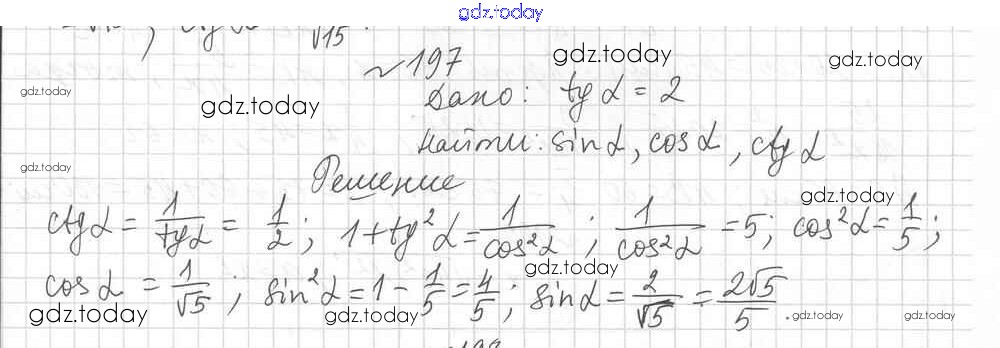 gdz.today
√15
№197
gdz.today gdz.today
gdz.today
Дано: tg α = 2
gdz.today
Найти: sin α, cos α, ctg α
gdz.today
Решение
gdz.today
ctg α = 1/tg α = 1/2; 1 + tg²α = 1/cos²α; 1/cos²α = 5; cos²α = 1/5;
gdz.today
cos α = 1/√5; sin²α = 1 − 1/5 = 4/5; sin α = 2/√5 = 2√5/5.
gdz.today gdz.today gdz.today gdz.today